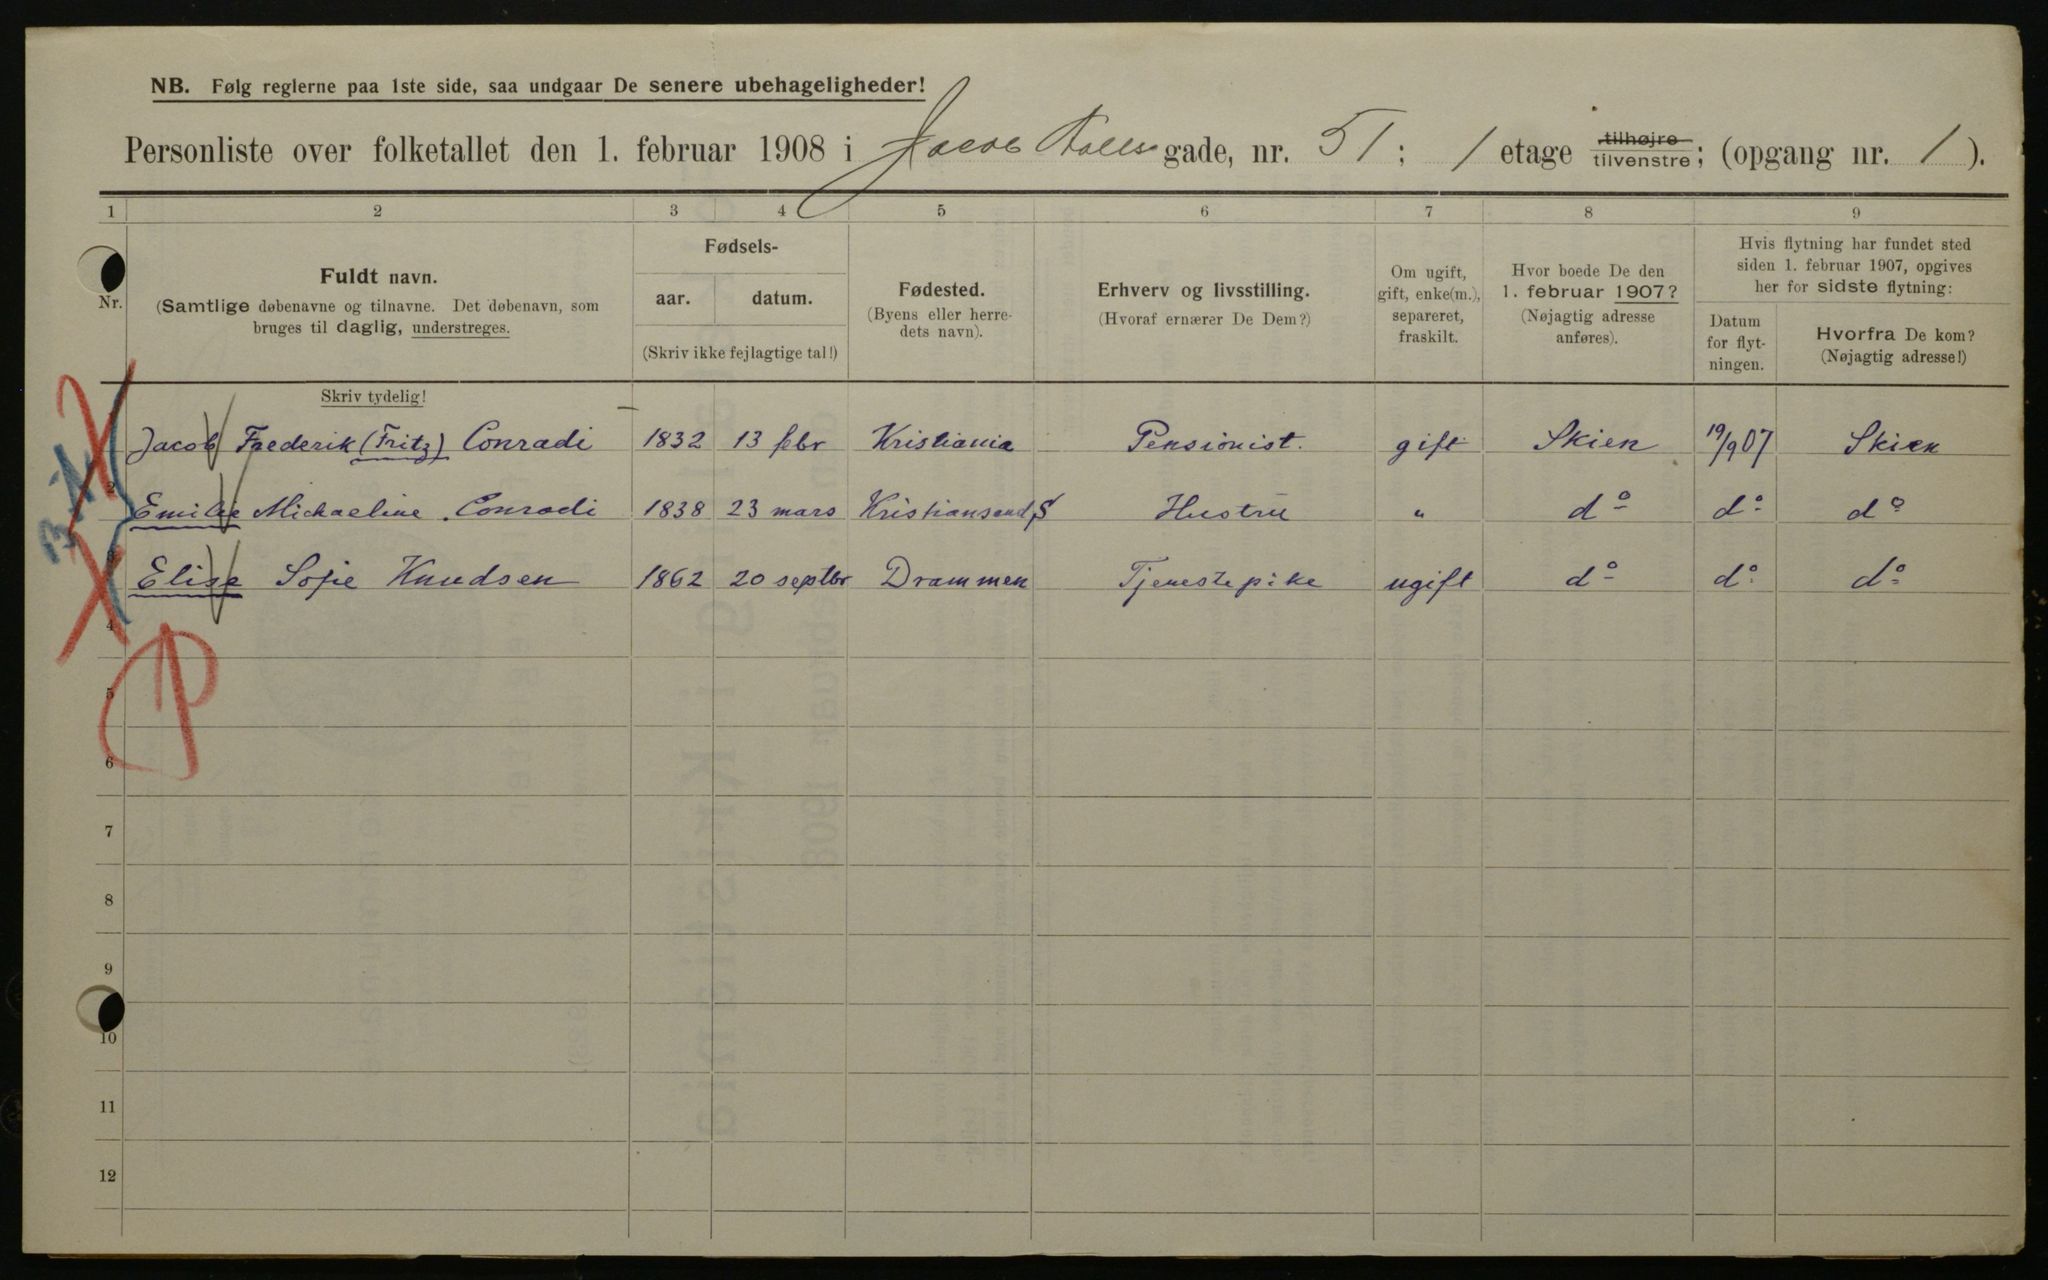 NB. Følg reglerne paa 1ste side, saa undgaar De senere ubehageligheder!
Personliste over folketallet den 1. februar 1908 i Jacob Aalls gade, nr. 51; 1 etage tilhøjre tilvenstre; (opgang nr. 1).
1 2 3 4 5 6 7 8 9
Nr.
Fuldt navn.
(Samtlige døbenavne og tilnavne. Det døbenavn, som
bruges til daglig, understreges.
Fødsels-
aar. datum.
(Skriv ikke fejlagtige tal!)
Fødested.
(Byens eller herre-
dets navn).
Erhverv og livsstilling.
(Hvoraf ernærer De Dem?)
Om ugift,
gift, enke(m.),
separeret,
fraskilt.
Hvor boede De den
1. februar 1907?
(Nøjagtig adresse
anføres).
Hvis flytning har fundet sted
siden 1. februar 1907, opgives
her for sidste flytning:
Datum
for flyt-
ningen.
Hvorfra De kom?
(Nøjagtig adresse!)
Skriv tydelig!
Jacob Frederik (Fritz) Conradi 1832 13 febr Kristiania Pensionist. gift Skien 19/9 07 Skien
2 Emilie Michaeline Conradi 1838 23 mars Kristiansand S Hustru " do do do
3 Elise Sofie Knudsen 1862 20 septbr Drammen Tjenestepike ugift do do do
4
5
6
7
8
9
10
11
12